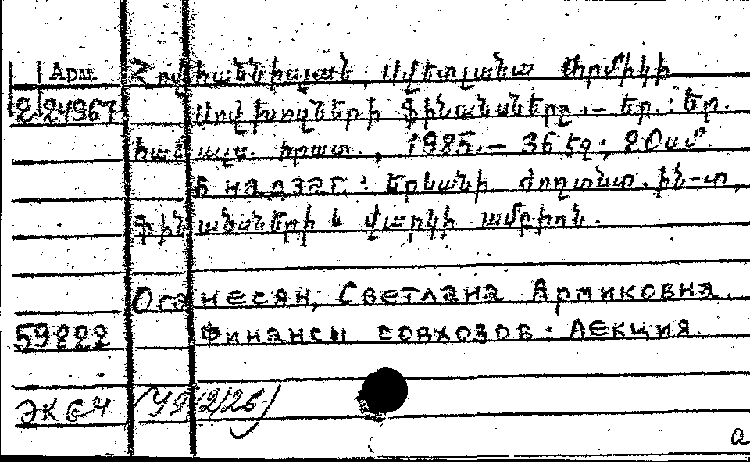 Арм Հովհաննիսյան, Սվետլանա Արմիկի
2 24967 Սովխոզների ֆինանսները. — Եր. : Եր.
համալս. հրատ., 1985. — 36 էջ ; 20 սմ
В надзаг. : Երևանի ժողտնտ. ին-տ,
Ֆինանսների և վարկի ամբիոն.
Оганесян, Светлана Армиковна.
59222 Финансы совхозов. Лекция.
ЭКБЧ
а